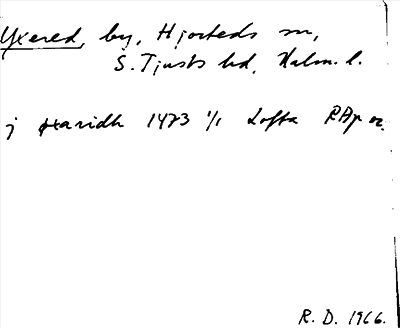 Yxered, by, Hjorteds sn,
S. Tjusts hd, Kalm. l.
j Yxaridh 1473 1/1 Lofta RAp or.
R. D. 1966.